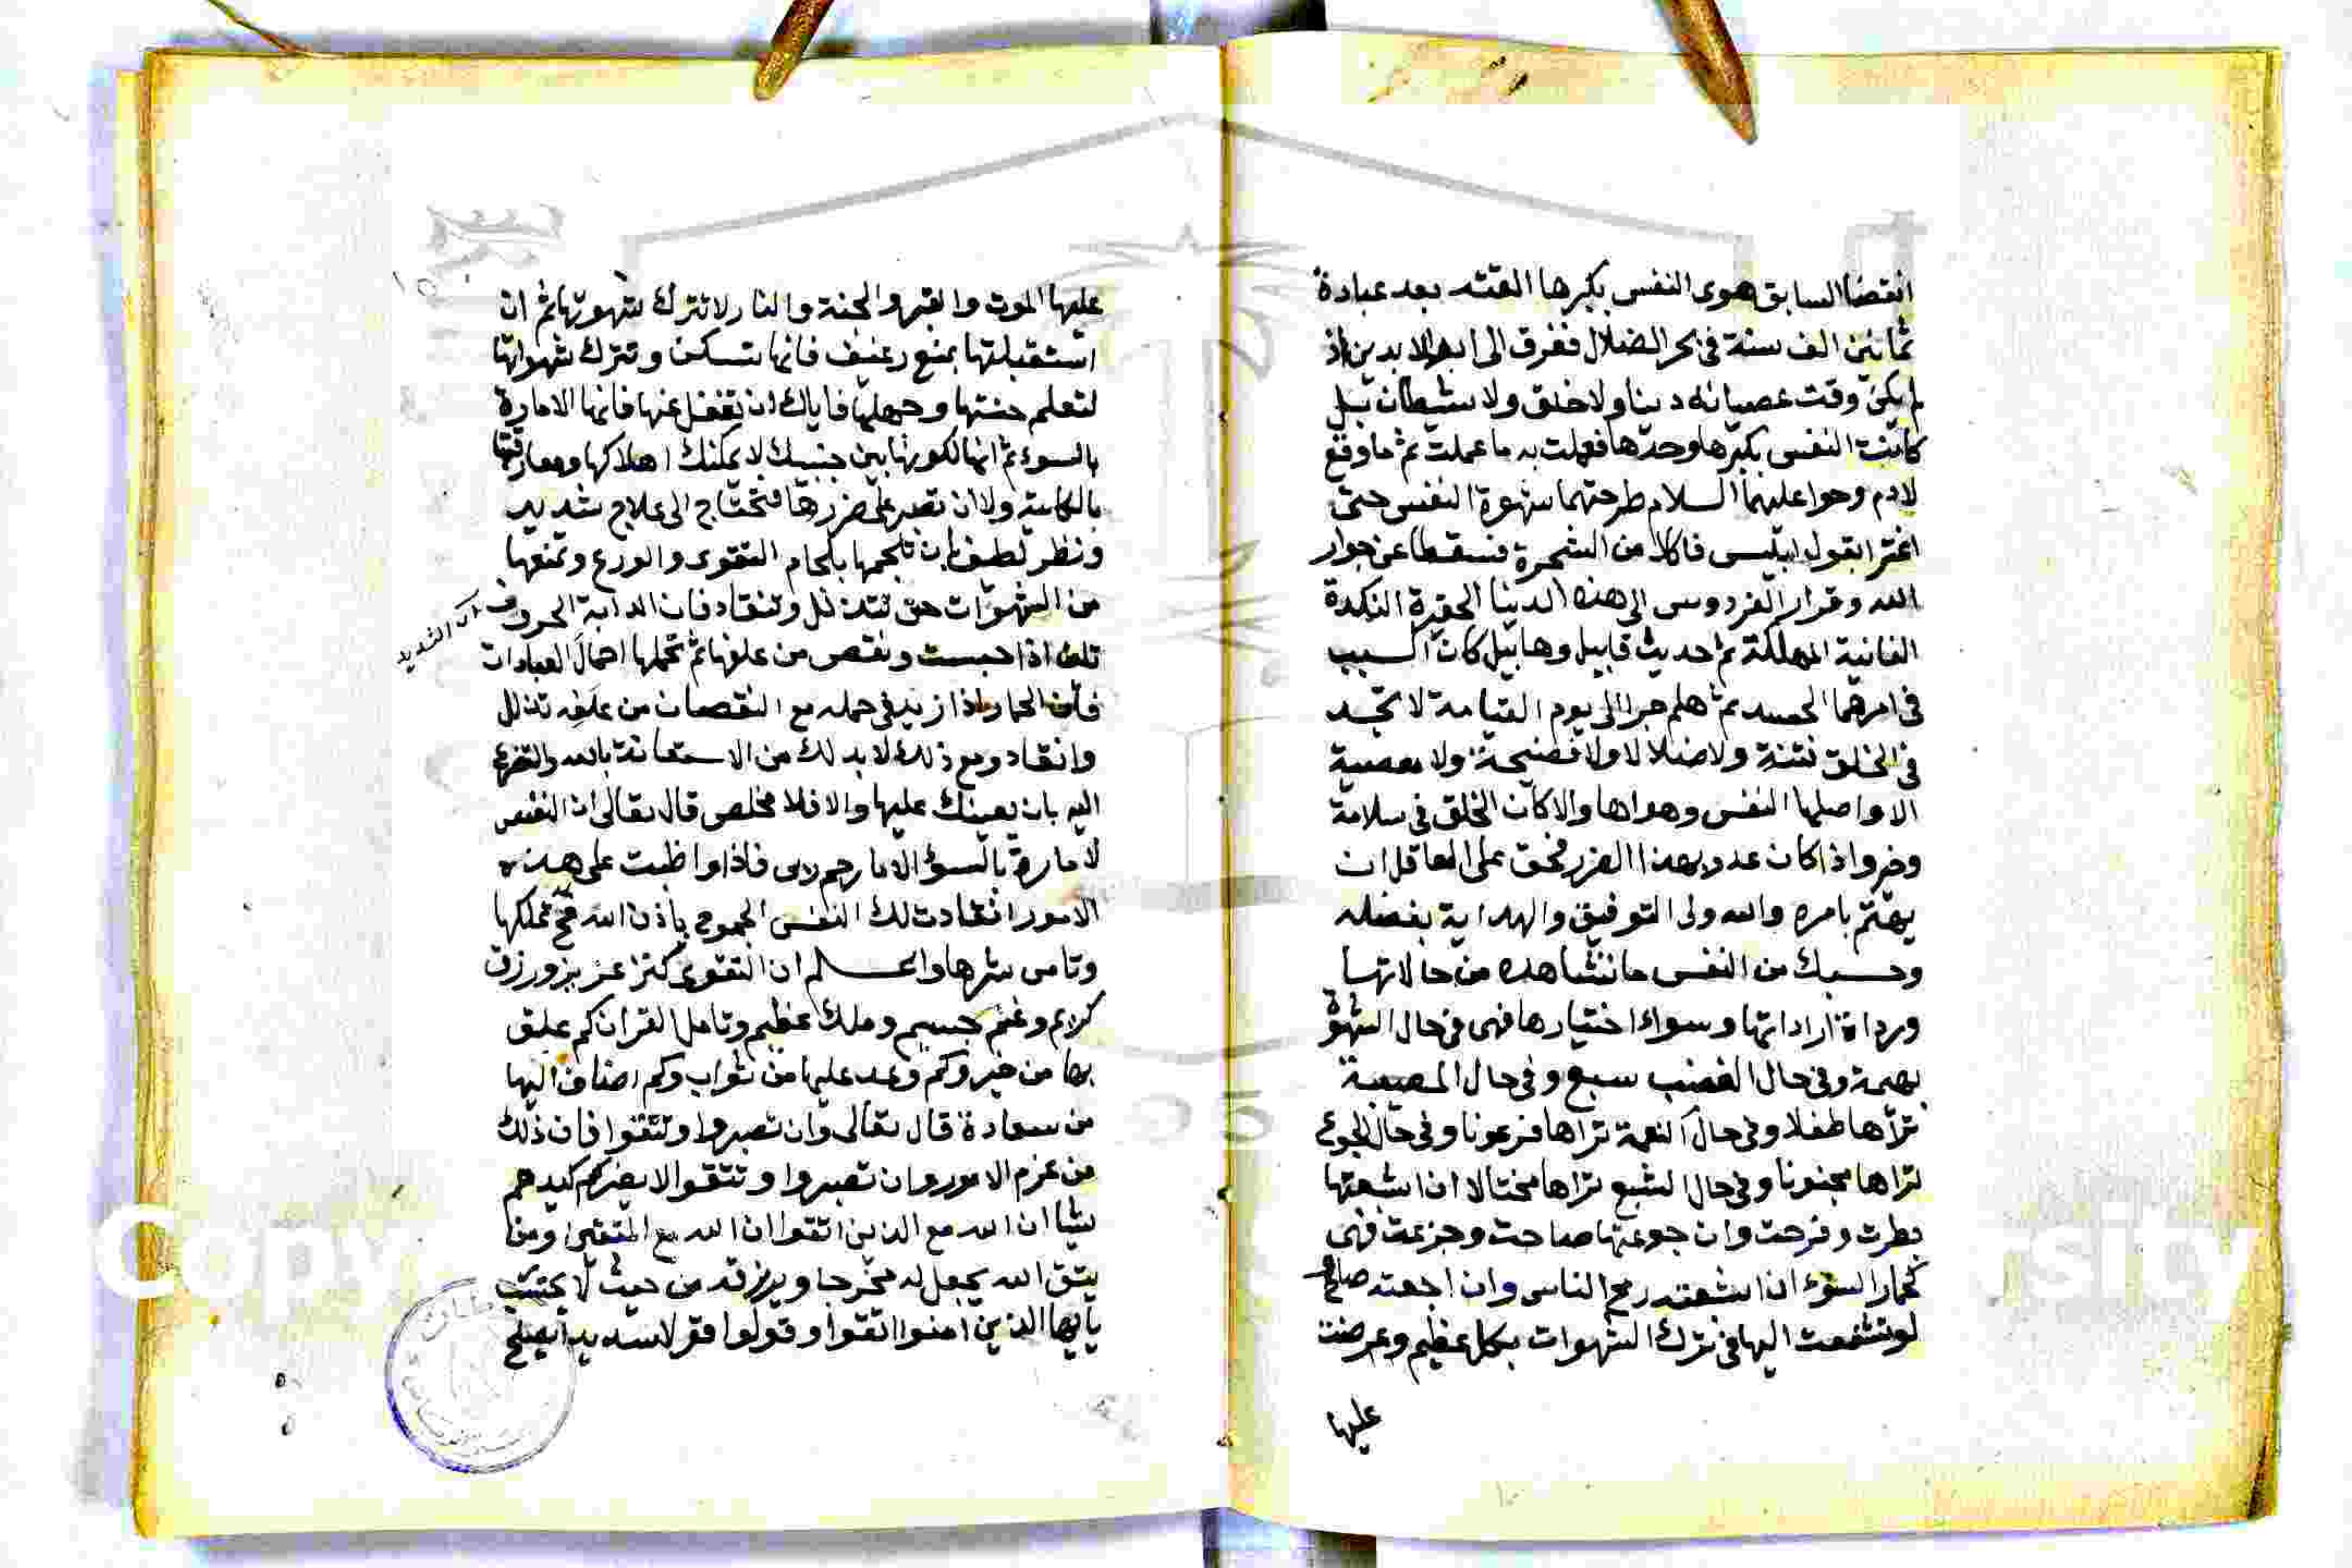 انقضا السابق هوى النفس بكبرها القته بعد عبادة
ثمانين الف سنة في بحر الضلال ففرق الى ابد الابدين اذ
لم يكن وقت عصيانه دينا ولا خلق ولا شيطان بل
كانت النفس بكبرها وحدها فعملت به ما عملت ثم ما وقع
لادم وحوا عليهما السلام طرحتهما شهوة النفس حتى
اغترا بقول ابليس فاكلا من الشجرة فسقطا عن جوار
الله وقرار الفردوس الى هذه الدنيا الحقيرة النكدة
الفانية المهلكة ثم حديث قابيل وهابيل كان السبب
في امرهما الحسد ثم هلم جرا الى يوم القيامة لا تجد
في الخلق فتنة ولا ضلالا ولا فضيحة ولا معصية
الا واصلها النفس وهواها والا كان الخلق في سلامة
وخير واذا كان عدو بهذا الضرر فحق على العاقل ان
يهتم بامره والله ولى التوفيق والهداية بفضله
وحسبك من النفس ما تشاهده من حالاتها
ورداة اراداتها وسواء اختيارها فهى في حال الشهوة
بهيمة وفي حال الغضب سبع وفي حال المصيبة
تراها طفلا وفي حال النعمة تراها فرعونا وفي حال الجوع
تراها مجنونا وفي حال الشبع تراها مختالا ان اشبعتها
بطرت وفرحت وان جوعتها صاحت وجزعت فهى
كحمار السوء ان اشبعته رمح الناس وان اجعته صاح
لو تشفعت اليها في ترك الشهوات بكل عظيم وعرضت
عليها
عليها الموت والقبر والجنة والنار لا تترك شهوتها ثم ان
استقبلتها بمنع رغيف فانها تسكن وتترك شهواتها
لتعلم خستها وجهلها فاياك ان تغفل عنها فانها الامارة
بالسوء ثم انها لكونها بين جنبيك لا يمكنك اهلاكها ومفارقتها
بالكلية ولا ان تصبر على ضررها فتحتاج الى علاج شديد
ونظر لطيف بان تلجمها بلجام التقوى والورع وتمنعها
من الشهوات حتى تتذلل وتنقاد فان الدابة الحرون
تلين اذا حبست ونقص من علفها ثم تحملها احمال العبادات
فان الحمار اذا زيد في حمله مع النقصان من علفه تذلل
وانقاد ومع ذلك لا بد لك من الاستعانة بالله والتضرع
اليه بان يعينك عليها والا فلا مخلص قال تعالى ان النفس
لامارة بالسوء الا ما رحم ربى فاذا واظبت على هذه
الامور انقادت لك النفس الجموح باذن الله فح تملكها
وتامن شرها واعلم ان التقوى كنز عزيز ورزق
كريم وغنم جسيم وملك عظيم وتامل القران كم علق
بها من خير وكم وعد عليها من ثواب وكم اضاف اليها
من سعادة قال تعالى وان تصبروا وتتقوا فان ذلك
من عزم الامور وان تصبروا وتتقوا لا يضركم كيدهم
شيا ان الله مع الذين اتقوا ان الله مع المتقين ومن
يتق الله يجعل له مخرجا ويرزقه من حيث لا يحتسب
يا ايها الذين امنوا اتقوا وقولوا قولا سديدا يصلح